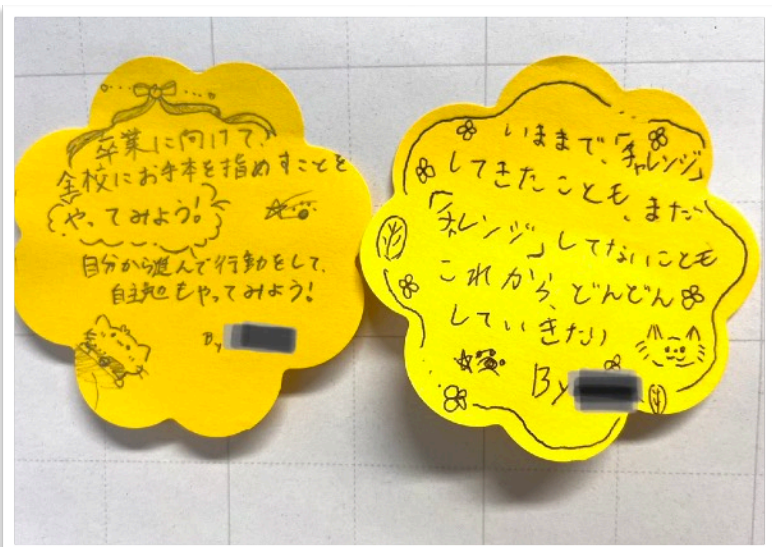 卒業に向けて、
全校にお手本を指めすことを
や、てみよう!
自分から進んで行動をして、
自主勉もやってみよう!
By
いままで、「チャレンジ」
してきたことも、まだ
「チャレンジ」してないことも
これから、どんどん
していきたい
By